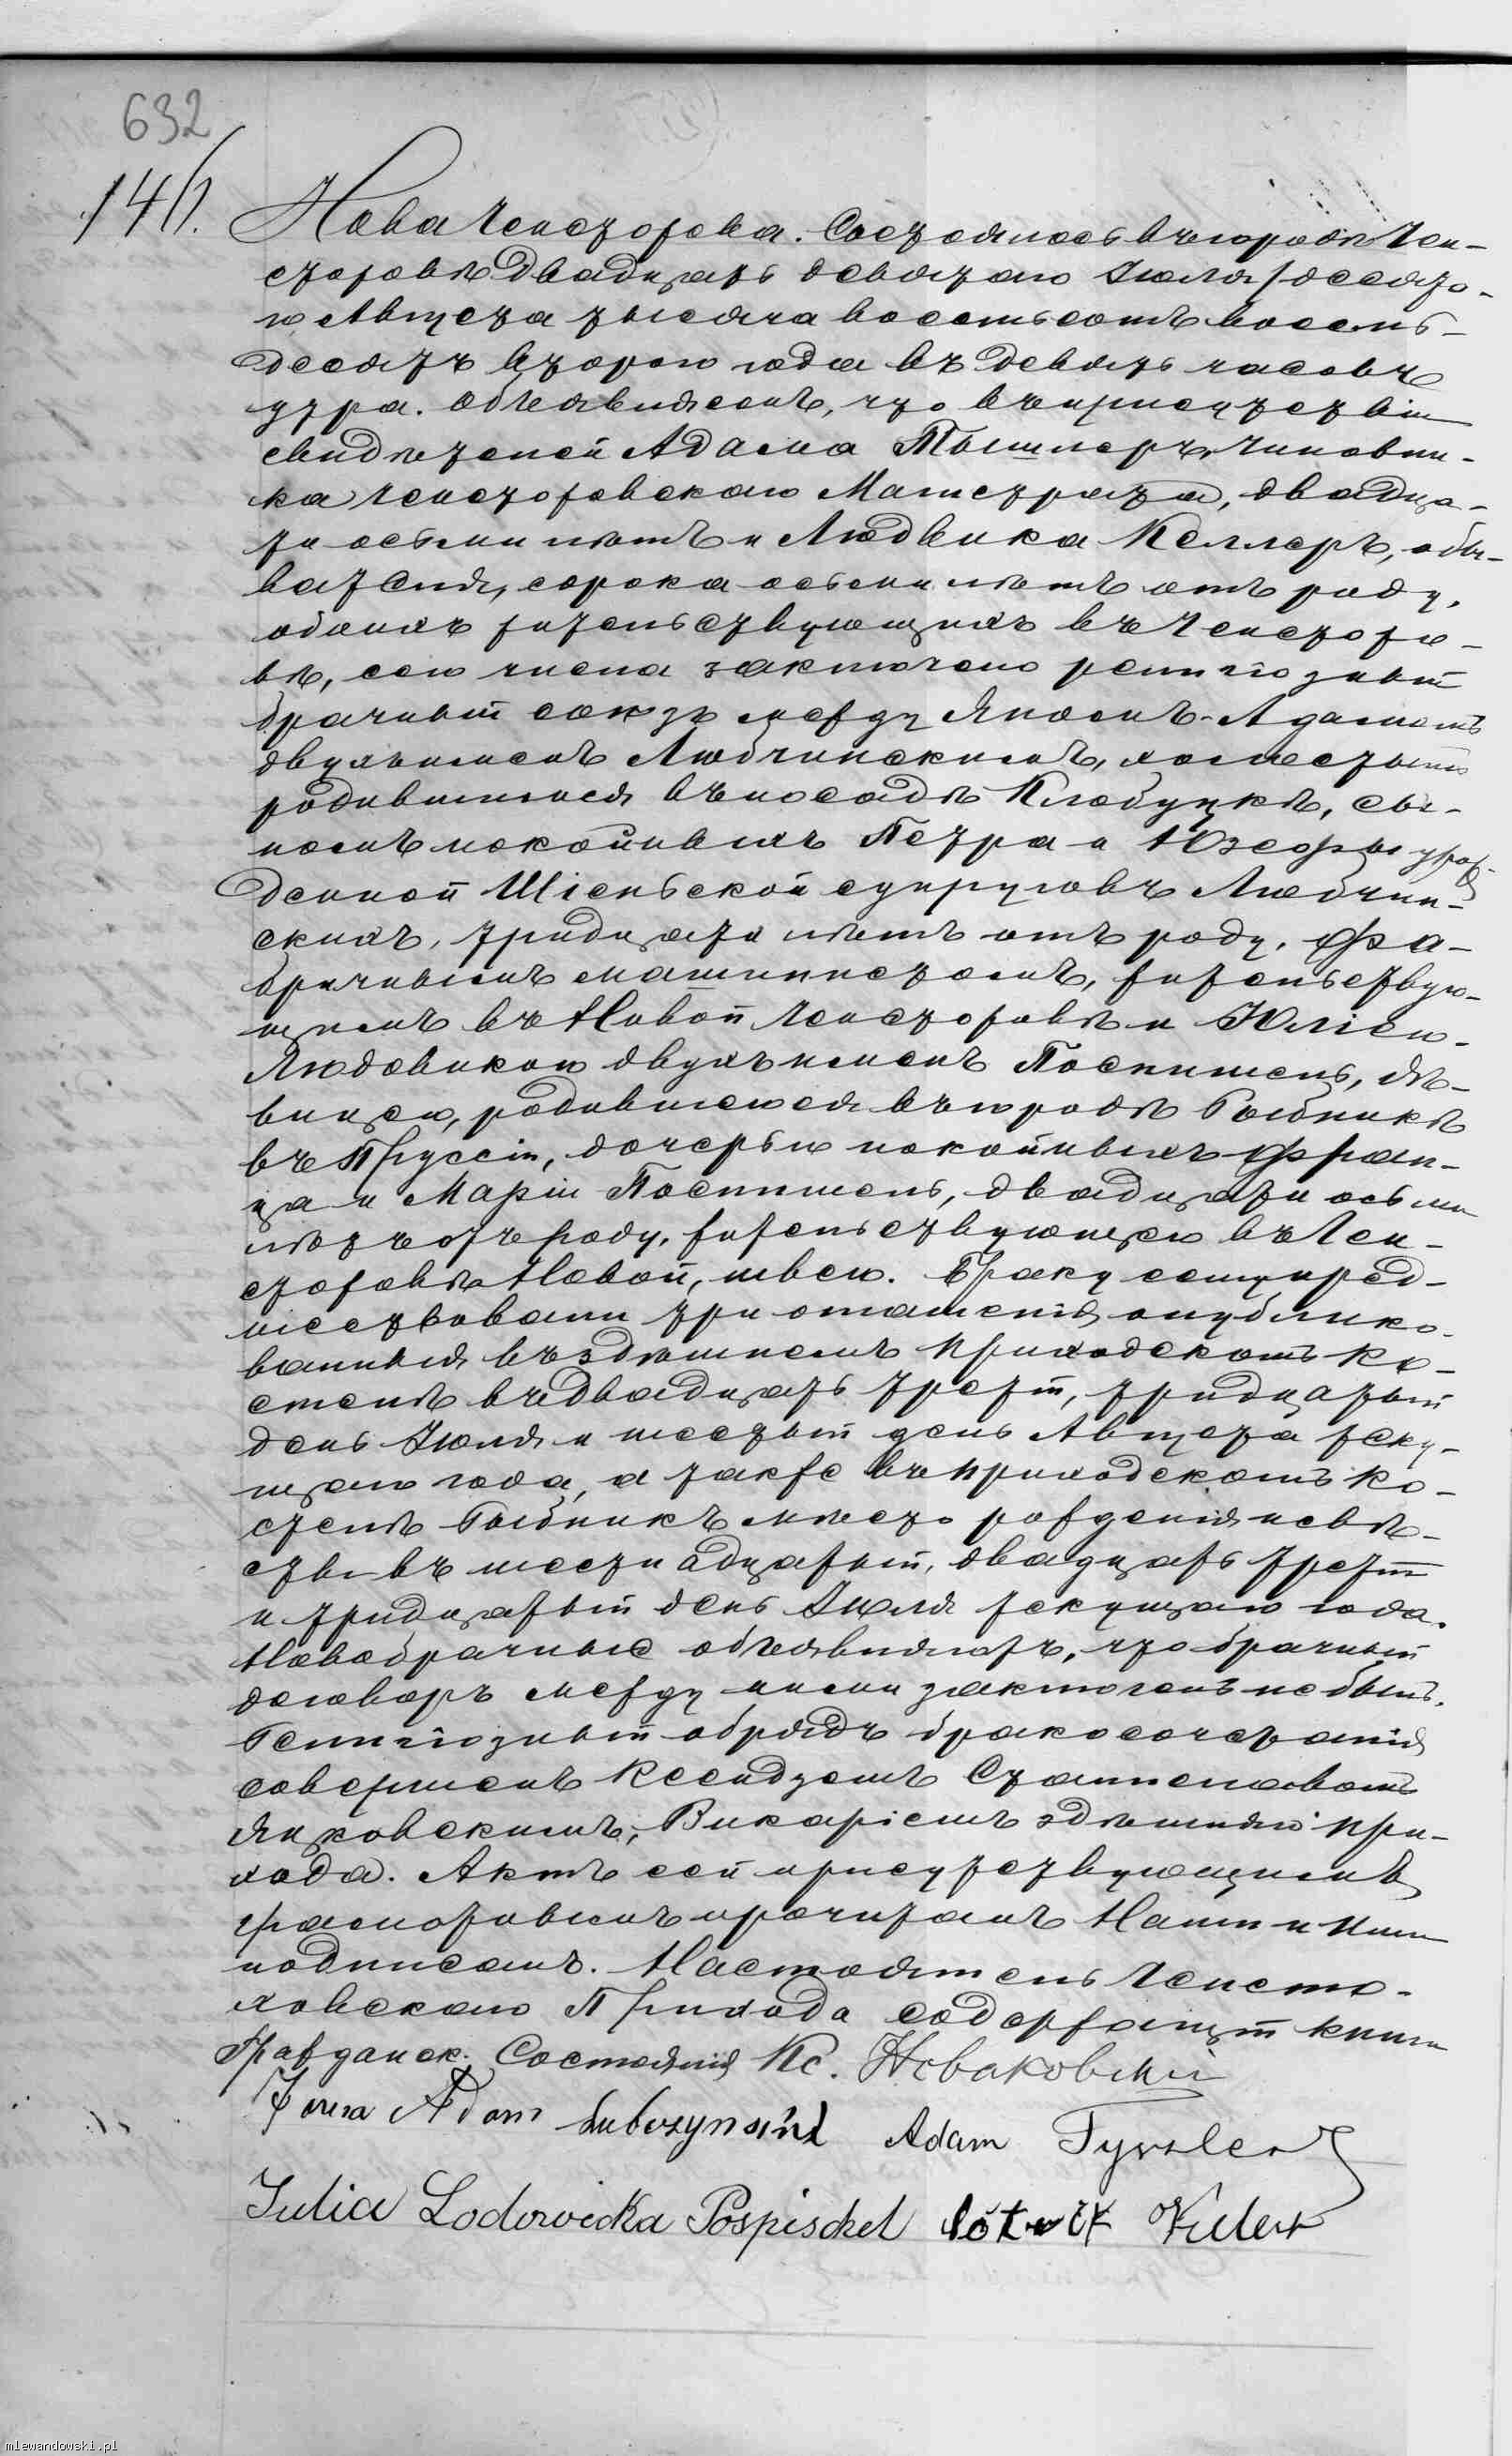 632
146.
Нова Ченстохова. Состоялось въ городѣ Чен-
стоховѣ двадцать девятаго Іюля/десято-
го Августа тысяча восемьсотъ восемь-
десятъ втораго года въ девять часовъ
утра. Объявляемъ, что въ присутствіи
свидѣтелей Адама Тышлеръ, чиновни-
ка Ченстоховскаго Магистрата, двадца-
ти осьми лѣтъ и Людвика Келлеръ, обы-
вателя, сорока осьми лѣтъ отъ роду,
обоихъ жительствующихъ въ Ченстохо-
вѣ, сего числа заключенъ религіозный
брачный союзъ между Яномъ-Адамомъ
двухъименъ Любчинскимъ, холостымъ
родившимся въ посадѣ Клобуцкѣ, сы-
номъ покойныхъ Петра и Юзефы урож-
денной супруговъ Любчин-
скихъ, тридцати лѣтъ отъ роду, фа-
бричнымъ машинистомъ, жительствую-
щимъ въ Новой Ченстоховѣ и Юліею-
Людовикою двухъименъ Поспишель, дѣ-
вицею, родившеюся въ городѣ Рыбникѣ
въ Пруссіи, дочерью покойныхъ Фран-
ца и Маріи Поспишель, двадцати осьми
лѣтъ отъ роду, жительствующею въ Чен-
стоховѣ Новой, швею. Браку сему пред-
шествовали три оглашенія опублико-
ванныя въ здѣшнемъ приходскомъ Ко-
стелѣ въ двадцать третій, тридцатый
день Іюля и шестый день Августа теку-
щаго года, а также въ приходскомъ Ко-
стелѣ Рыбникъ мѣсто рожденія невѣ-
сты въ шестнадцатый, двадцать третій
и тридцатый день Іюля текущаго года.
Новобрачные объявляютъ, что брачный
договоръ между ними заключенъ не былъ.
Религіозный обрядъ бракосочетанія
совершенъ Ксендзомъ Станиславомъ
Янковскимъ, Викаріемъ здѣшняго при-
хода. Актъ сей присутствующимъ
грамотнымъ прочитанъ Нами и ими
подписанъ. Настоятель Ченсто-
ховскаго Прихода содержащій книги
Гражданск. Состоянія Кс. Новаковскій
Jan Adam Lubczynski Adam Tyszler
Julia Lodowicka Pospischel Keler
mlewandowski.pl